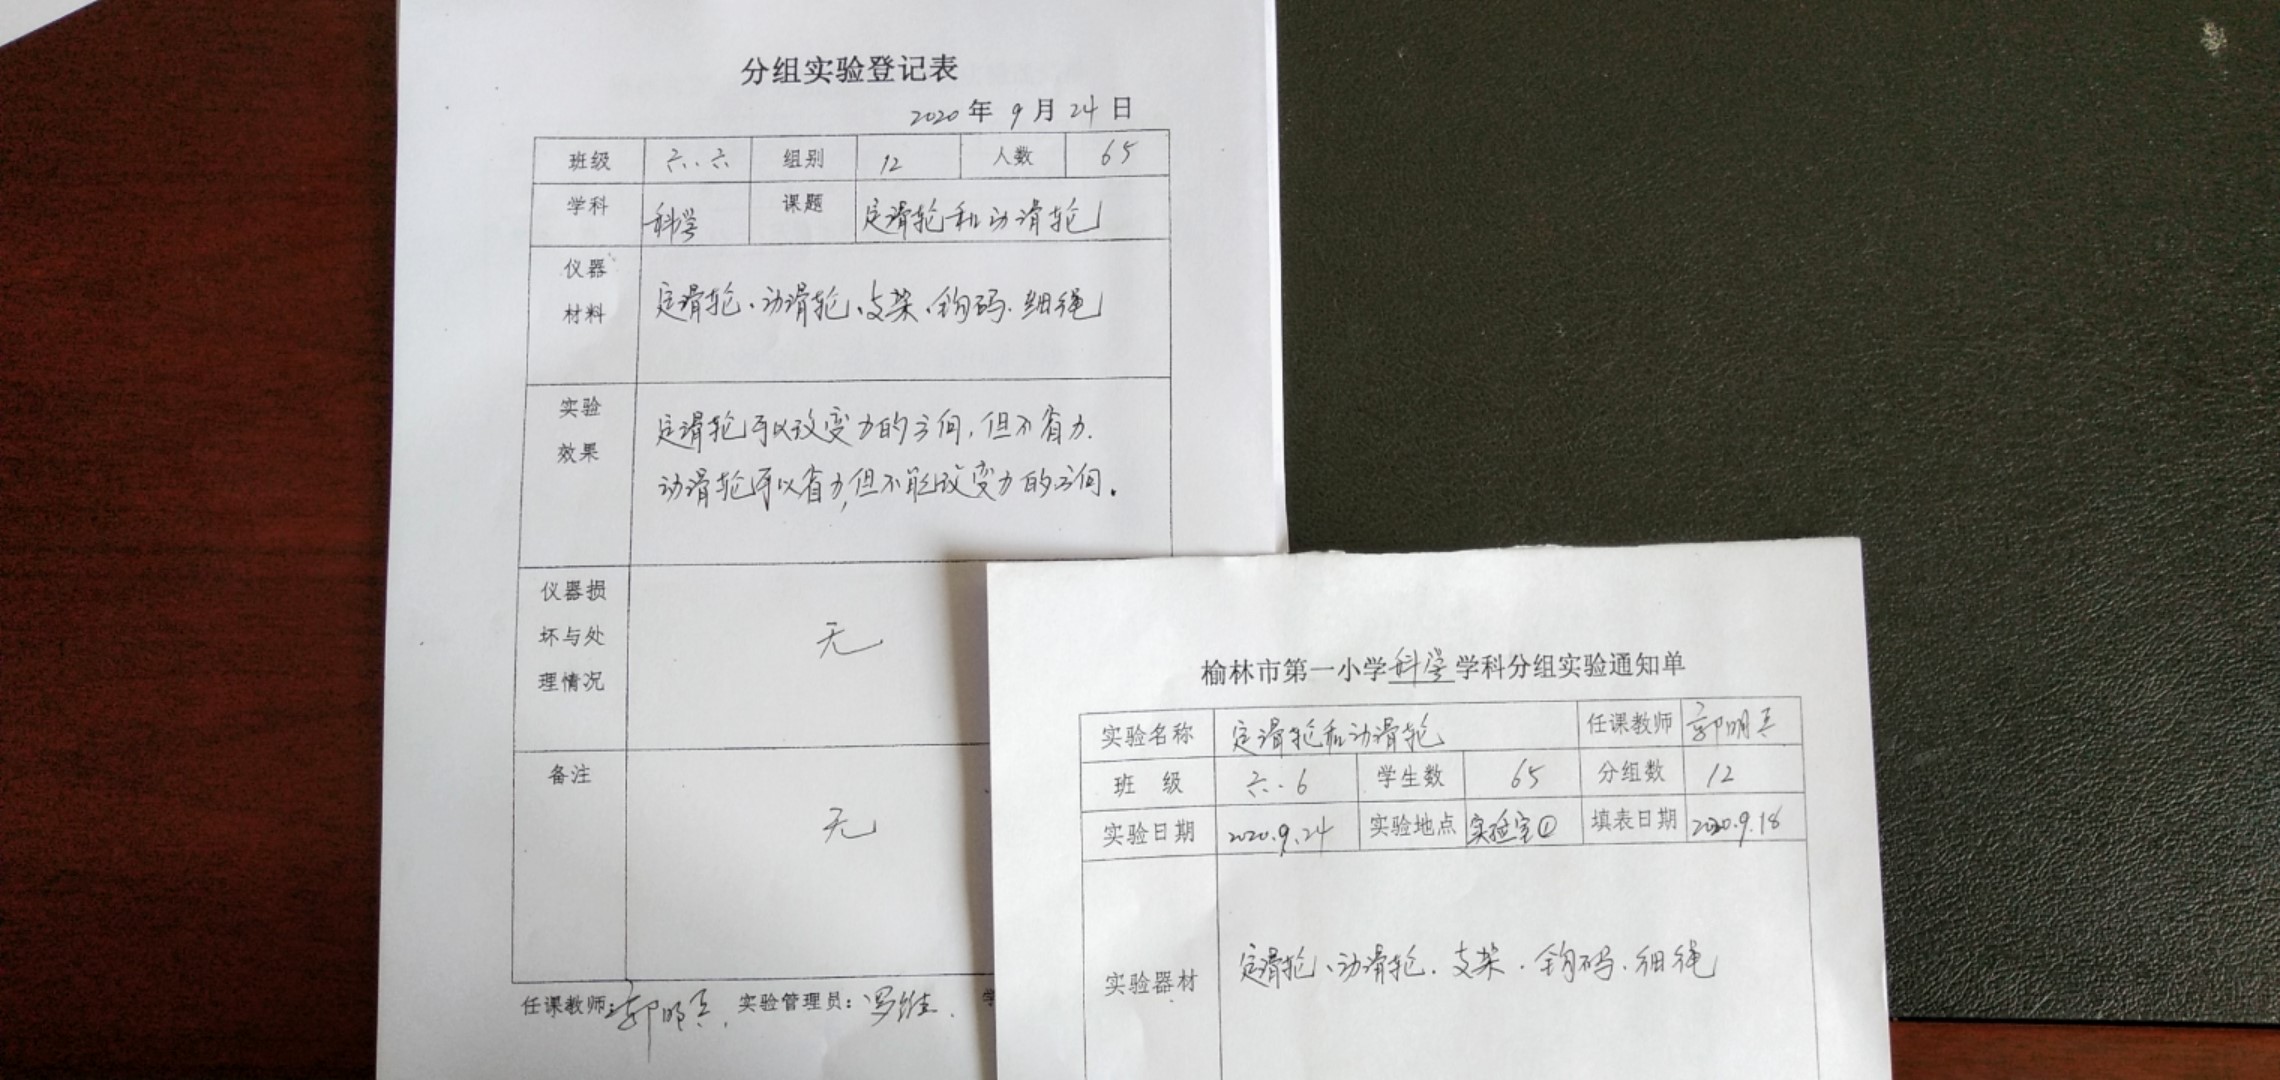 分组实验登记表
2020年9月24日
班级 六.六 组别 12 人数 65
学科 科学 课题 定滑轮和动滑轮
仪器材料 定滑轮、动滑轮、支架、钩码、细绳
实验效果 定滑轮可以改变力的方向,但不省力.
动滑轮可以省力,但不能改变力的方向.
仪器损坏与处理情况 无
备注 无
任课教师: 实验管理员:
榆林市第一小学科学学科分组实验通知单
实验名称 定滑轮和动滑轮 任课教师
班 级 六.6 学生数 65 分组数 12
实验日期 2020.9.24 实验地点 实验室① 填表日期 2020.9.18
实验器材 定滑轮、动滑轮、支架、钩码、细绳